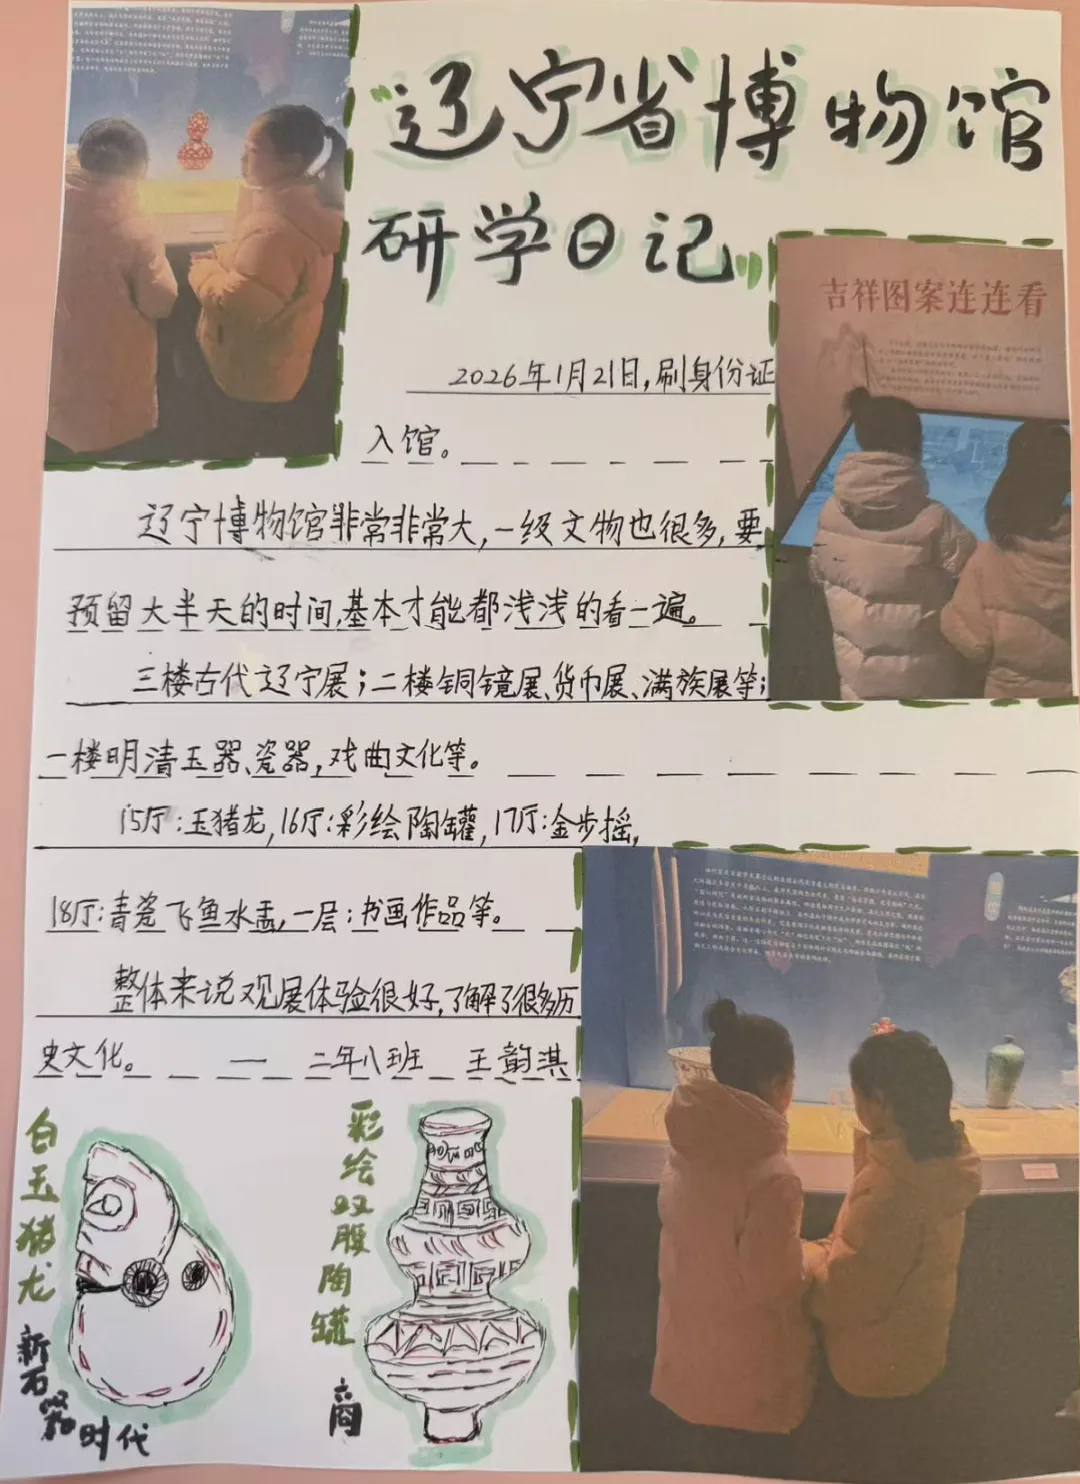 “辽宁省博物馆
研学日记”
吉祥图案连连看
2026年1月21日,刷身份证
入馆。
辽宁博物馆非常非常大,一级文物也很多,要
预留大半天的时间,基本才能都浅浅的看一遍。
三楼古代辽宁展;二楼铜镜展、货币展、满族展等;
一楼明清玉器、瓷器,戏曲文化等。
15厅:玉猪龙,16厅:彩绘陶罐,17厅:金步摇,
18厅:青瓷飞鱼水盂,一层:书画作品等。
整体来说观展体验很好,了解了很多历
史文化。 — 二年八班 王韵淇
白玉猪龙
新石器时代
彩绘双腹陶罐
商